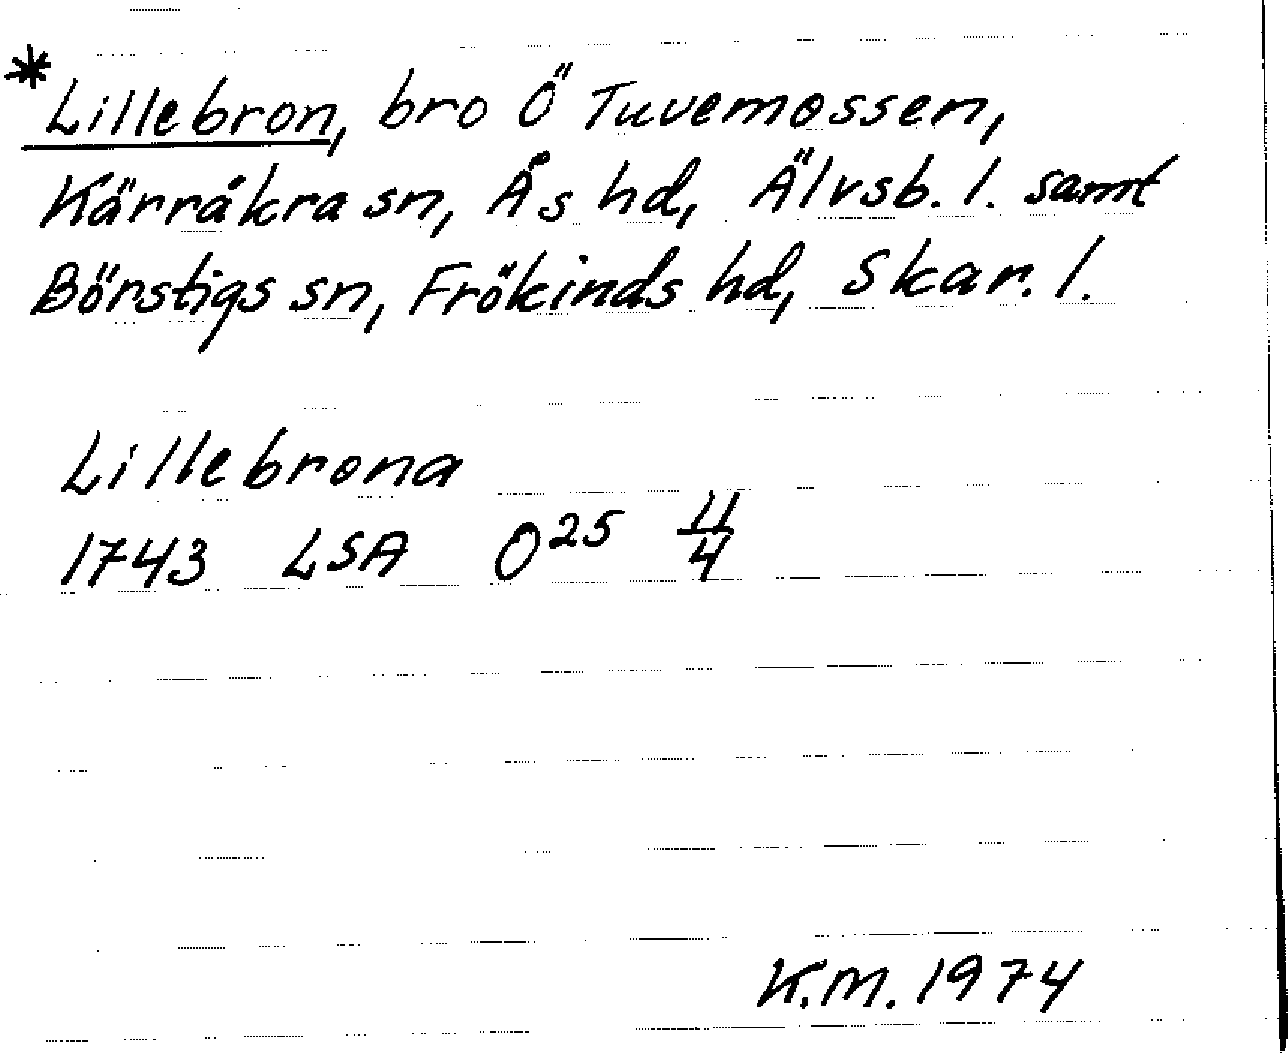 *Lillebron, bro Ö Tuvemossen,
Kärråkra sn, Ås hd, Älvsb. l. samt
Börstigs sn, Frökinds hd, Skar. l.
Lillebrona
1743 LSA O²⁵ 11/4
K.M. 1974